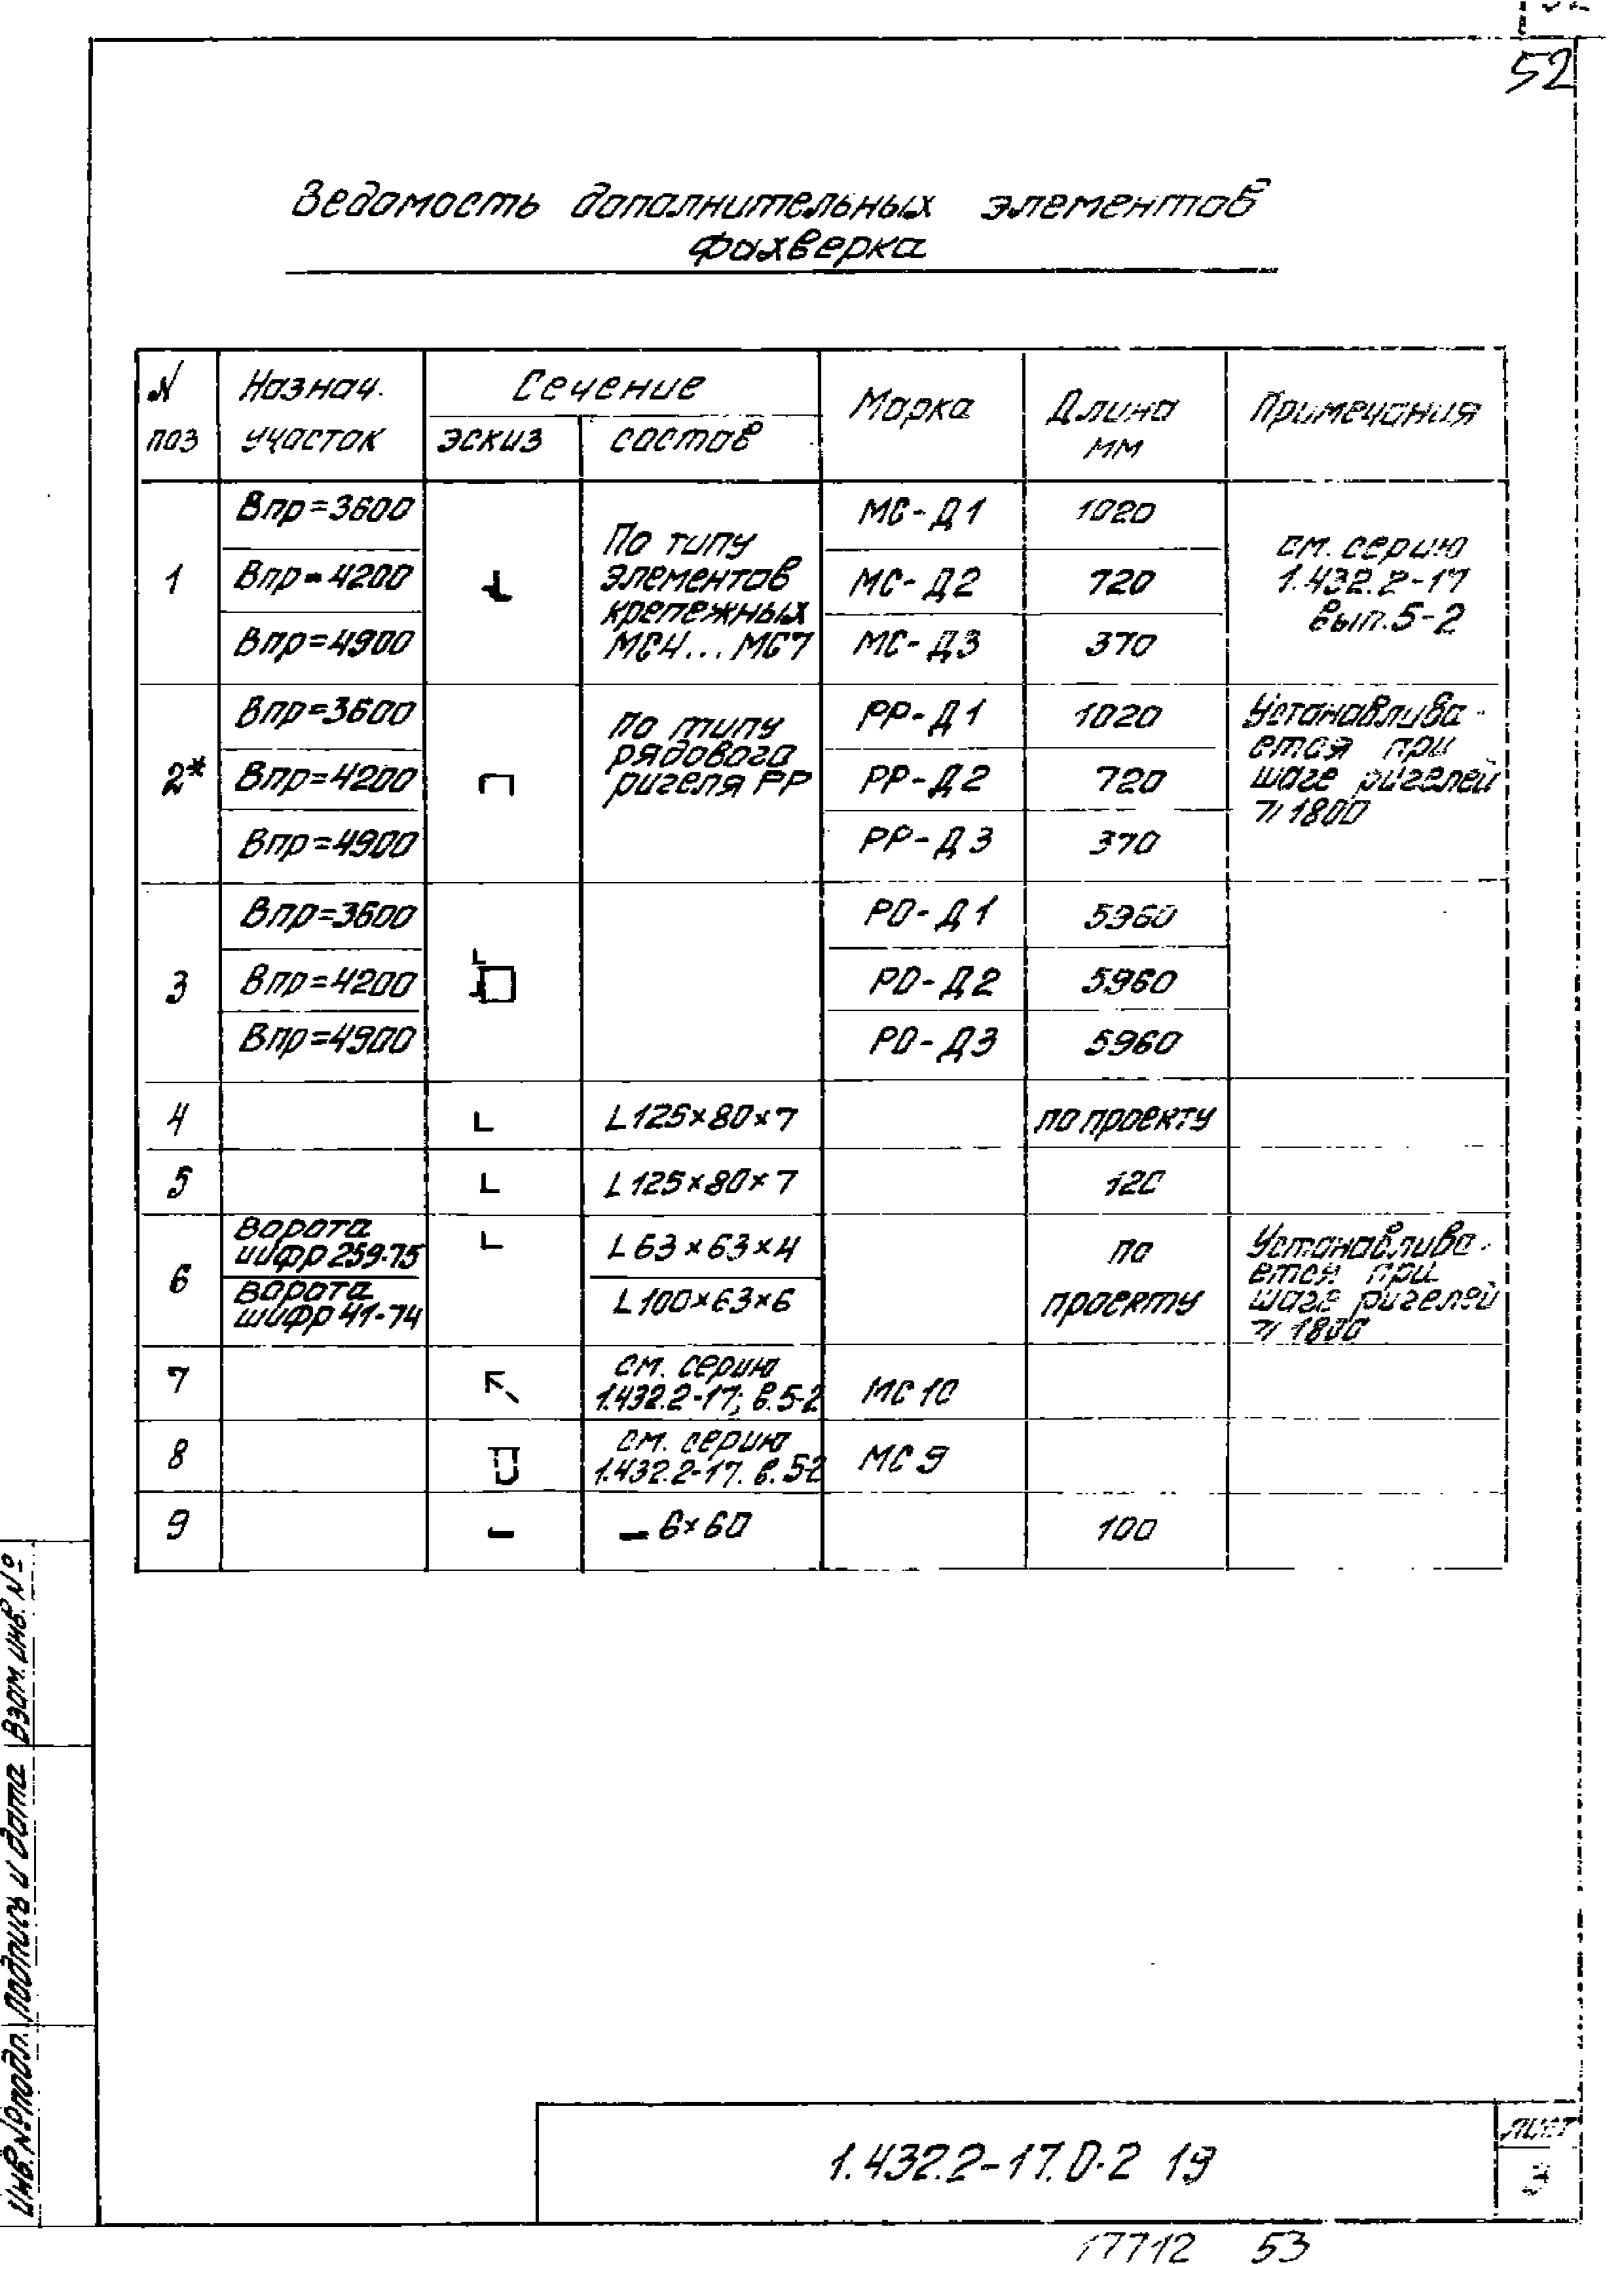 52
Ведомость дополнительных элементов
фахверка
N поз
Назнач. участок
Сечение
эскиз
состав
Марка
Длина мм
Примечания
1
Впр=3600
По типу элементов крепежных МС4...МС7
МС-Д1
1020
см. серию 1.432.2-17 вып.5-2
Впр=4200
МС-Д2
720
Впр=4900
МС-Д3
370
2*
Впр=3600
по типу рядового ригеля РР
РР-Д1
1020
Устанавлива-
ется при
шаге ригелей
> 1800
Впр=4200
РР-Д2
720
Впр=4900
РР-Д3
370
3
Впр=3600
РО-Д1
5960
Впр=4200
РО-Д2
5960
Впр=4900
РО-Д3
5960
4
L125×80×7
по проекту
5
L125×80×7
120
6
Ворота
шифр 259-75
L63×63×4
по
проекту
Устанавлива-
ется при
шаге ригелей
> 1800
Ворота
шифр 41-74
L100×63×6
7
см. серию
1.432.2-17; в.5-2
МС10
8
см. серию
1.432.2-17. в.5-2
МС9
9
6×60
100
Взам. инв. №
Подпись и дата
Инв. № подл.
1.432.2-17.0-2 19
лист
3
17712 53